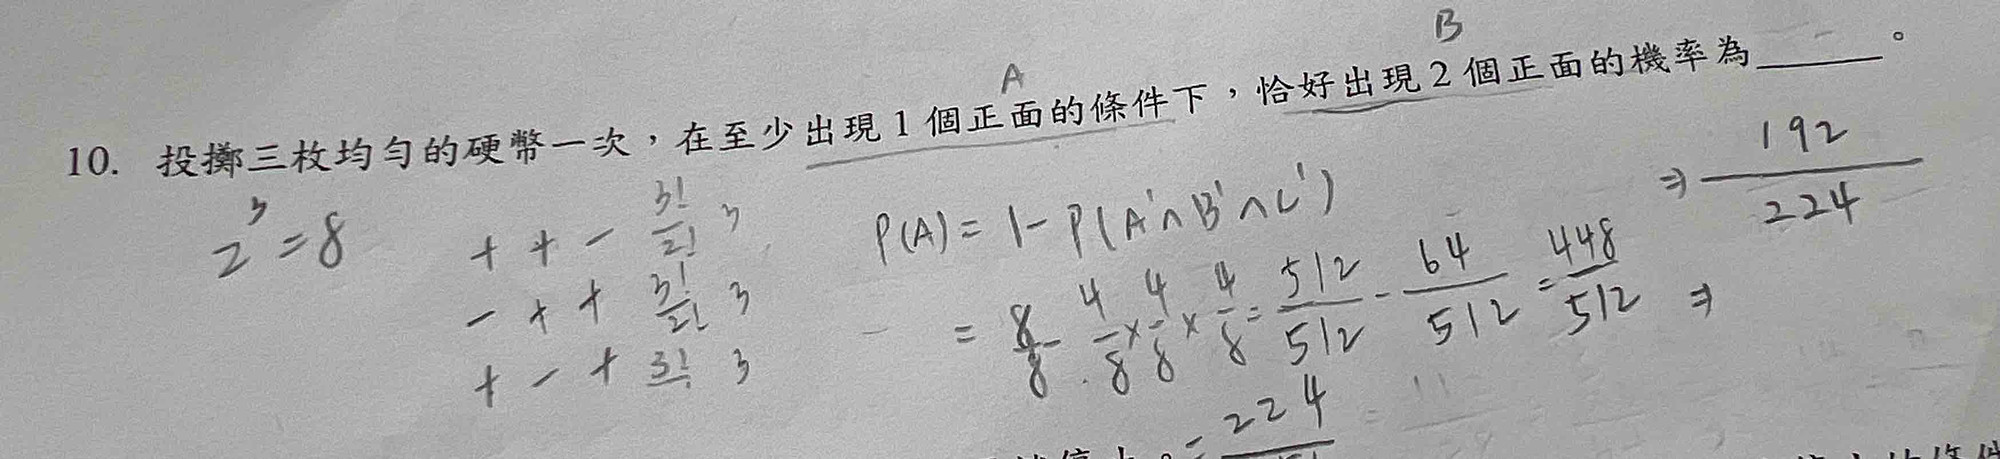 A
B
10. 投擲三枚均勻的硬幣一次，在至少出現1個正面的條件下，恰好出現2個正面的機率為______。
2³=8
+ + - 3!/2! 3
- + + 3!/2! 3
+ - + 3! 3
P(A)= 1-P(A'∩B'∩C')
= 8/8 - 4/8 × 4/8 × 4/8 = 512/512 - 64/512 = 448/512 ⇒
⇒ 192/224
= 224